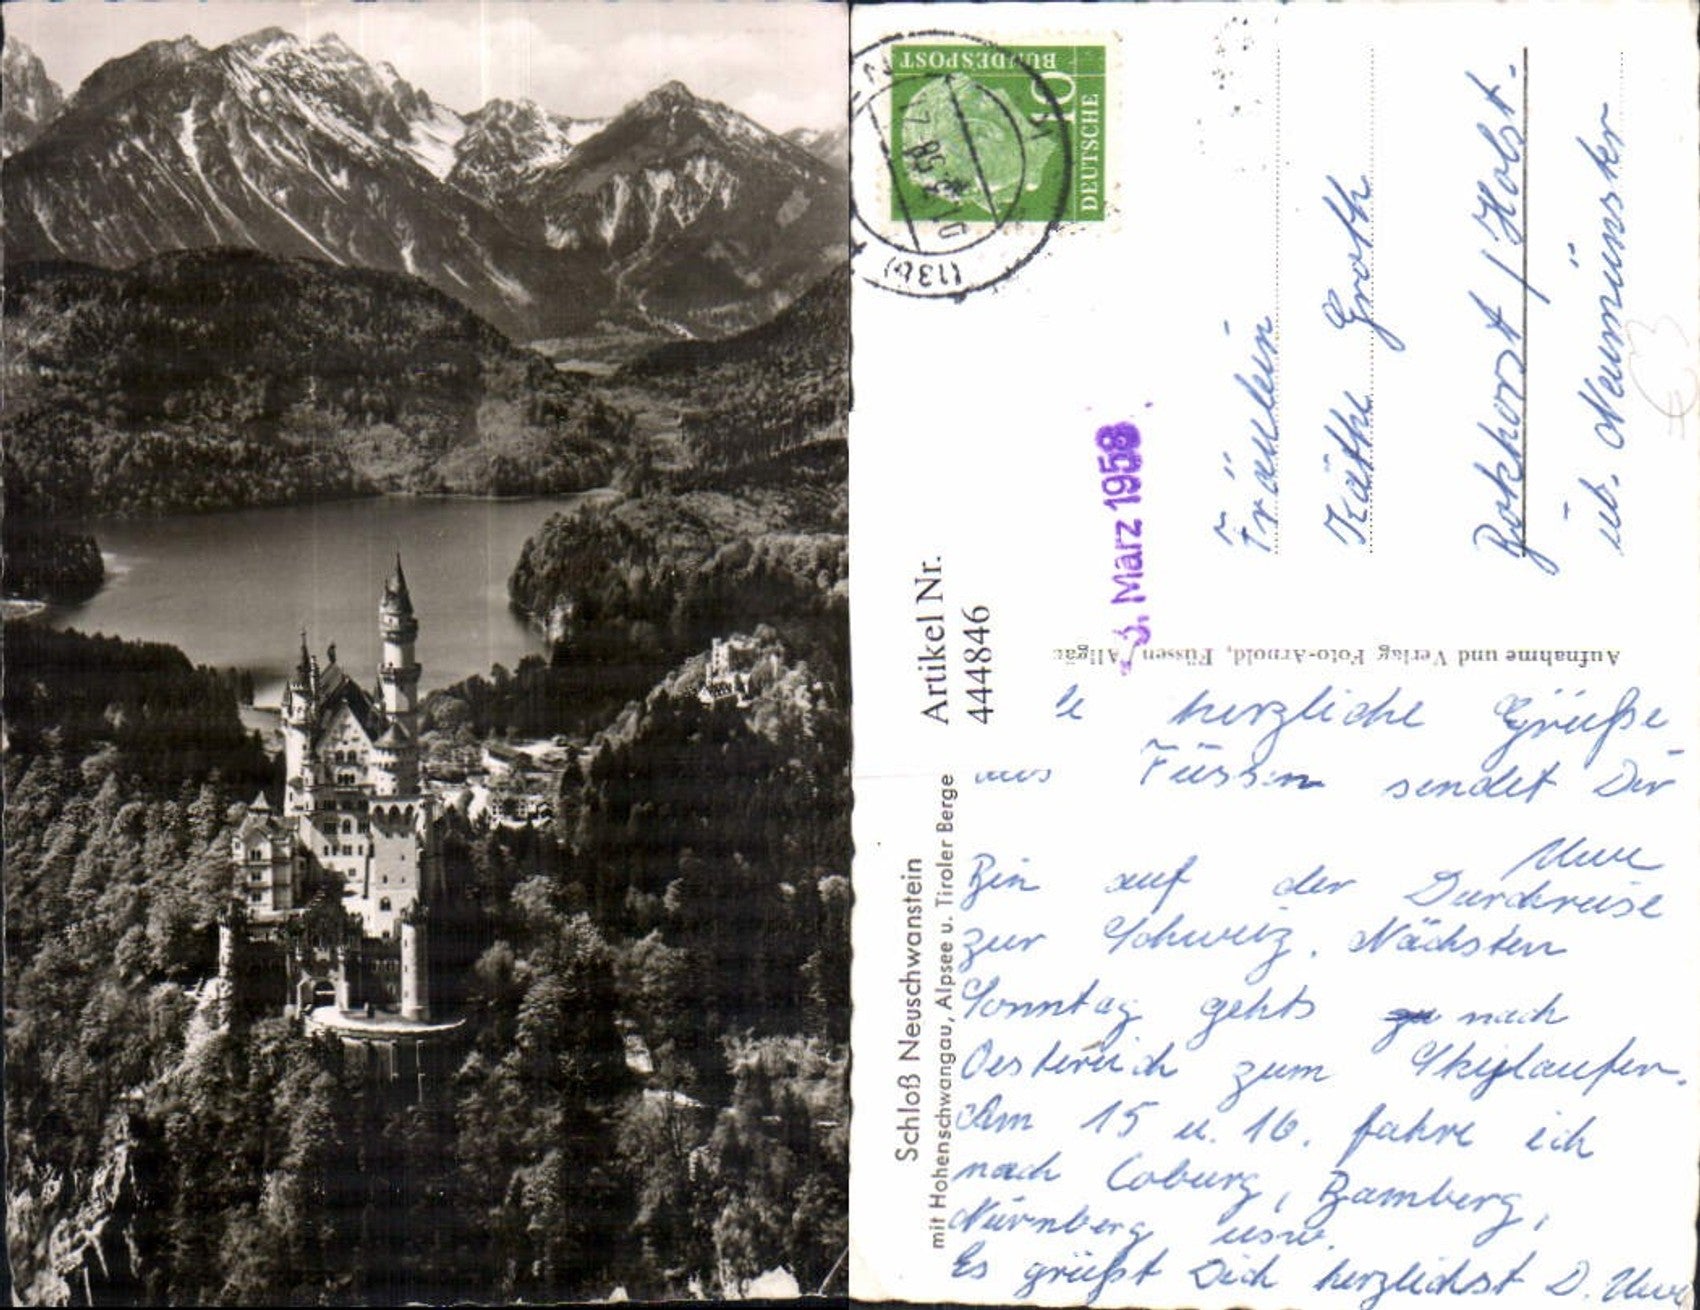 DEUTSCHE
BUNDESPOST
10
(13b)
3. März 1958
Fräulein
Käthe Groth
Bokhorst / Holst.
üb. Neumünster
Artikel Nr.
444846
Aufnahme und Verlag Foto-Arnold, Füssen / Allgäu
Schloß Neuschwanstein
mit Hohenschwangau, Alpsee u. Tiroler Berge
herzliche Grüße
aus Füssen sendet Dir
Uwe
Bin auf der Durchreise
zur Schweiz. Nächsten
Sonntag gehts nach
Oesterreich zum Skylaufen.
Am 15 u. 16. fahre ich
nach Coburg, Bamberg,
Nürnberg usw.
Es grüßt Dich herzlichst D. Uwe